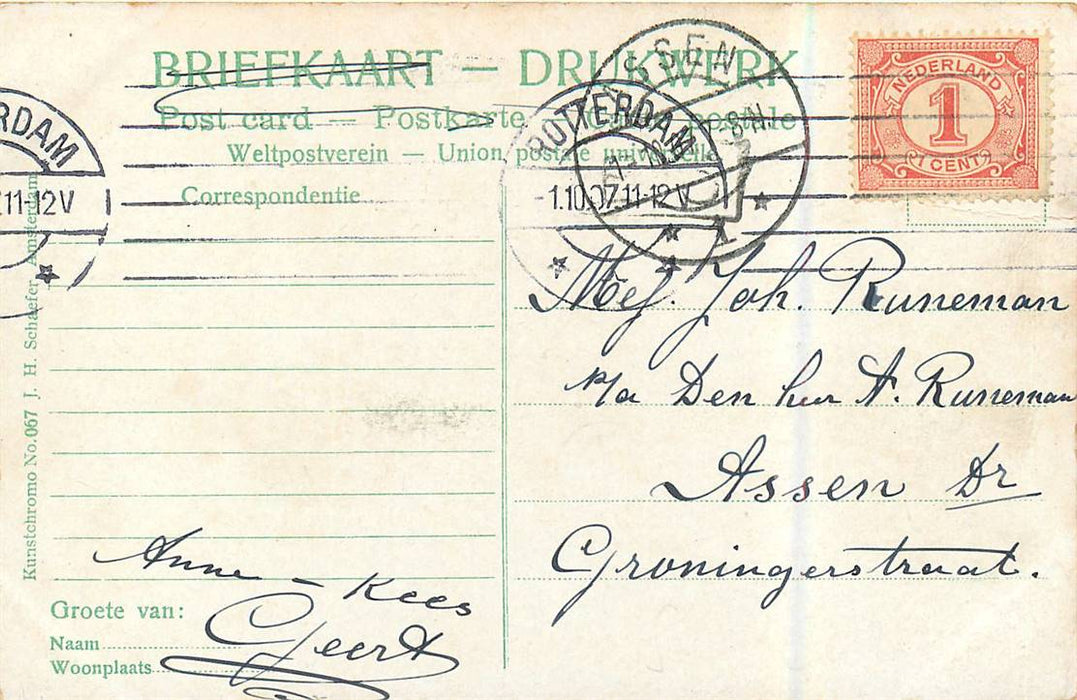 BRIEFKAART — DRUKWERK
Post card — Postkarte
Weltpostverein — Union postale universelle
Correspondentie
NEDERLAND
1
1 CENT
ROTTERDAM
1.10.07.11-12V
SSEN
8-N
RDAM
.11-12V
Mej. Joh. Runeman
p/a Den heer A. Runeman
Assen Dr
Groningerstraat.
Anne – Kees
Geert
Groete van:
Naam
Woonplaats
Kunstchromo No. 067 J. H. Schaefer Amsterdam